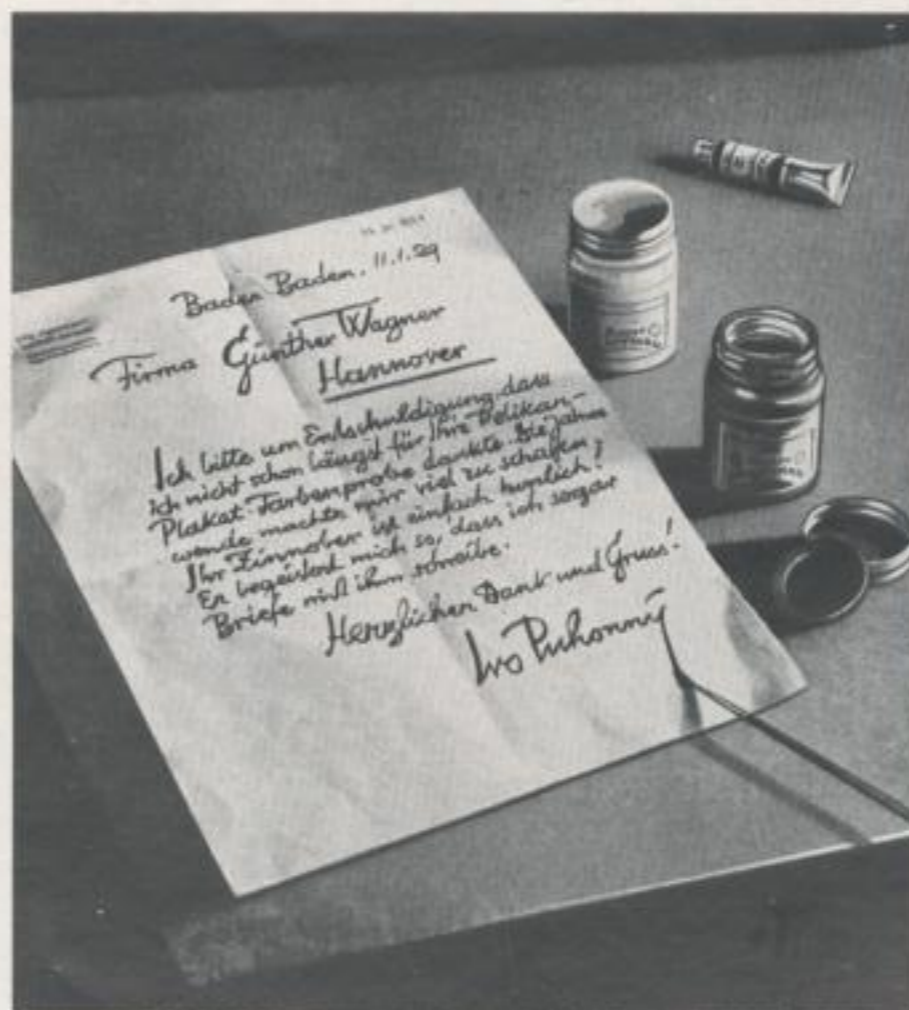 Baden Baden, 11.1.29
Firma Günther Wagner
Hannover
Ich bitte um Entschuldigung, dass
ich nicht schon längst für Ihre Pelikan-
Plakat-Farbenprobe dankte. Die Jahres
wende machte mir viel zu schaffen;
Ihr Zinnober ist einfach herrlich!
Er begeistert mich so, dass ich sogar
Briefe mit ihm schreibe.
Herzlichen Dank und Gruss!
Ivo Puhonný